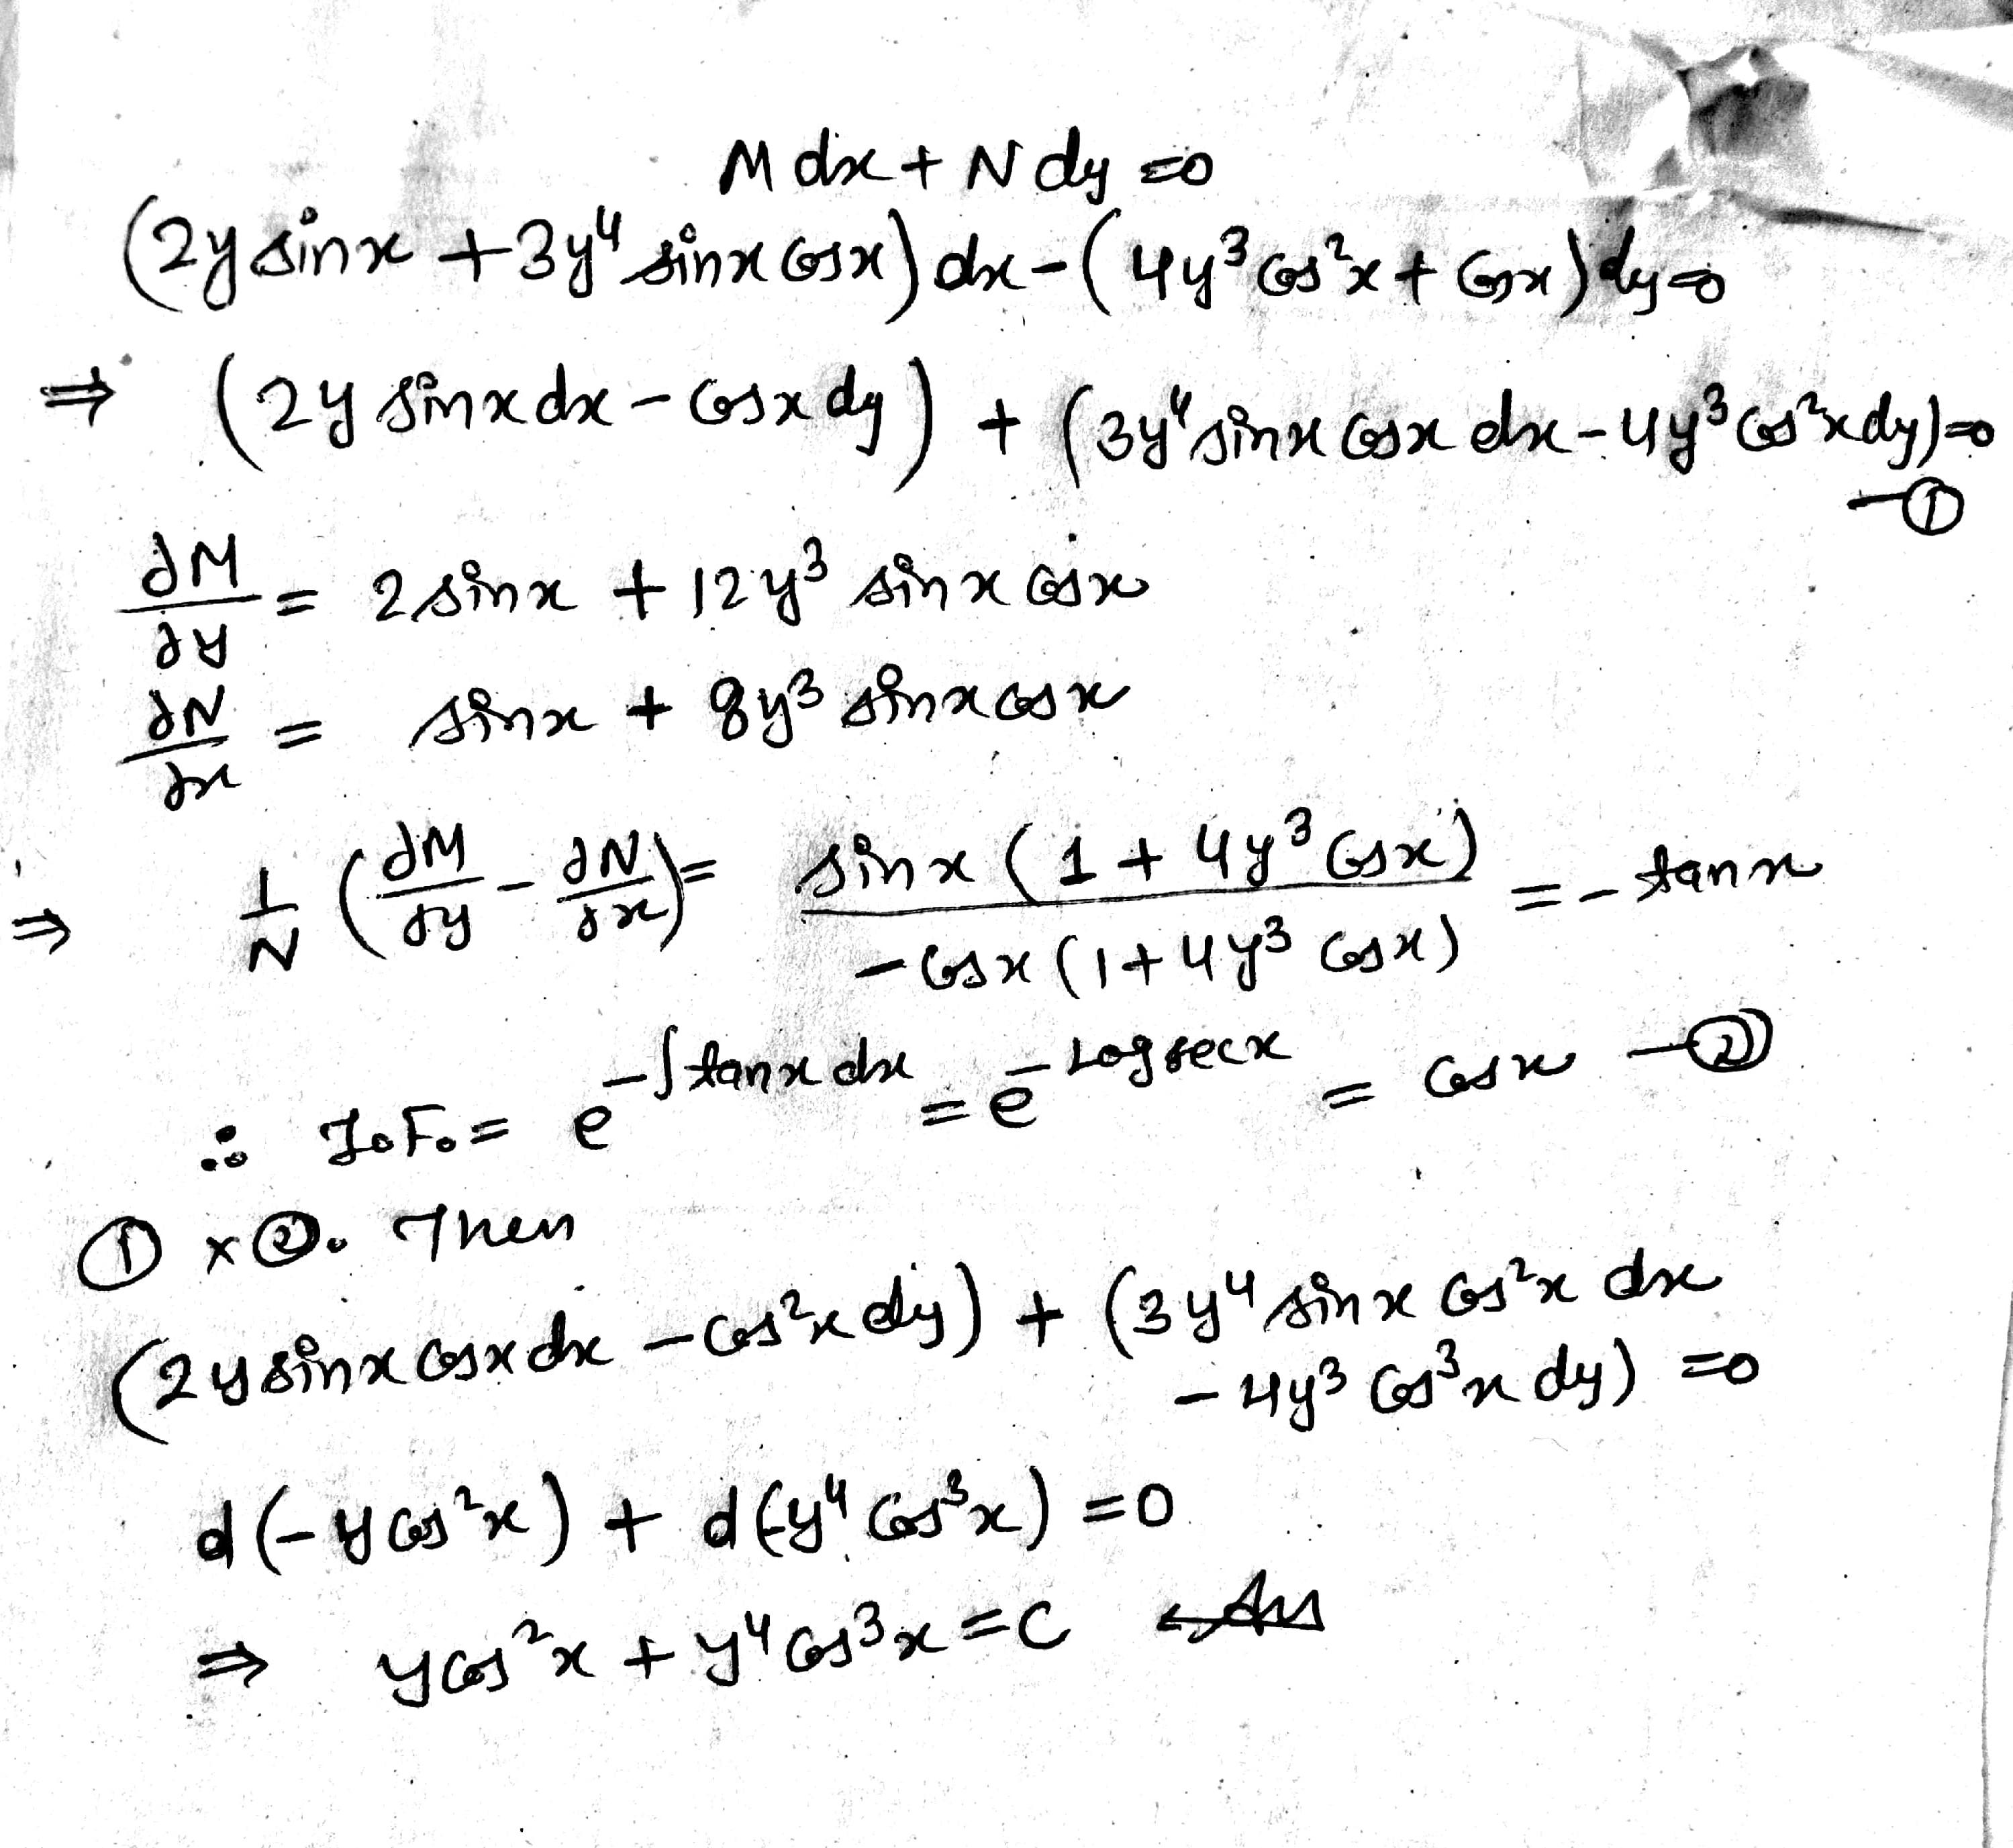 M dx + N dy =0
(2y sinx + 3y⁴ sinx Cosx) dx - (4y³ Cos²x + Cosx) dy =0
⇒ (2y sinx dx - Cosx dy) + (3y⁴ sinx Cosx dx - 4y³ Cos²x dy) =0
- ①
∂M/∂y = 2 sinx + 12 y³ sinx Cosx
∂N/∂x = sinx + 8y³ sinx cosx
⇒ 1/N (∂M/∂y - ∂N/∂x) = sinx (1 + 4y³ Cosx) / -Cosx (1 + 4y³ Cosx) = - tanx
∴ I.F. = e^(-∫tanx dx) = e^(-Log secx) = Cosx - ②
① × ②. Then
(2y sinx Cosx dx - Cos²x dy) + (3y⁴ sinx Cos²x dx
- 4y³ Cos³x dy) =0
d(-y Cos²x) + d(-y⁴ Cos³x) =0
⇒ y Cos²x + y⁴ Cos³x = C ← Ans